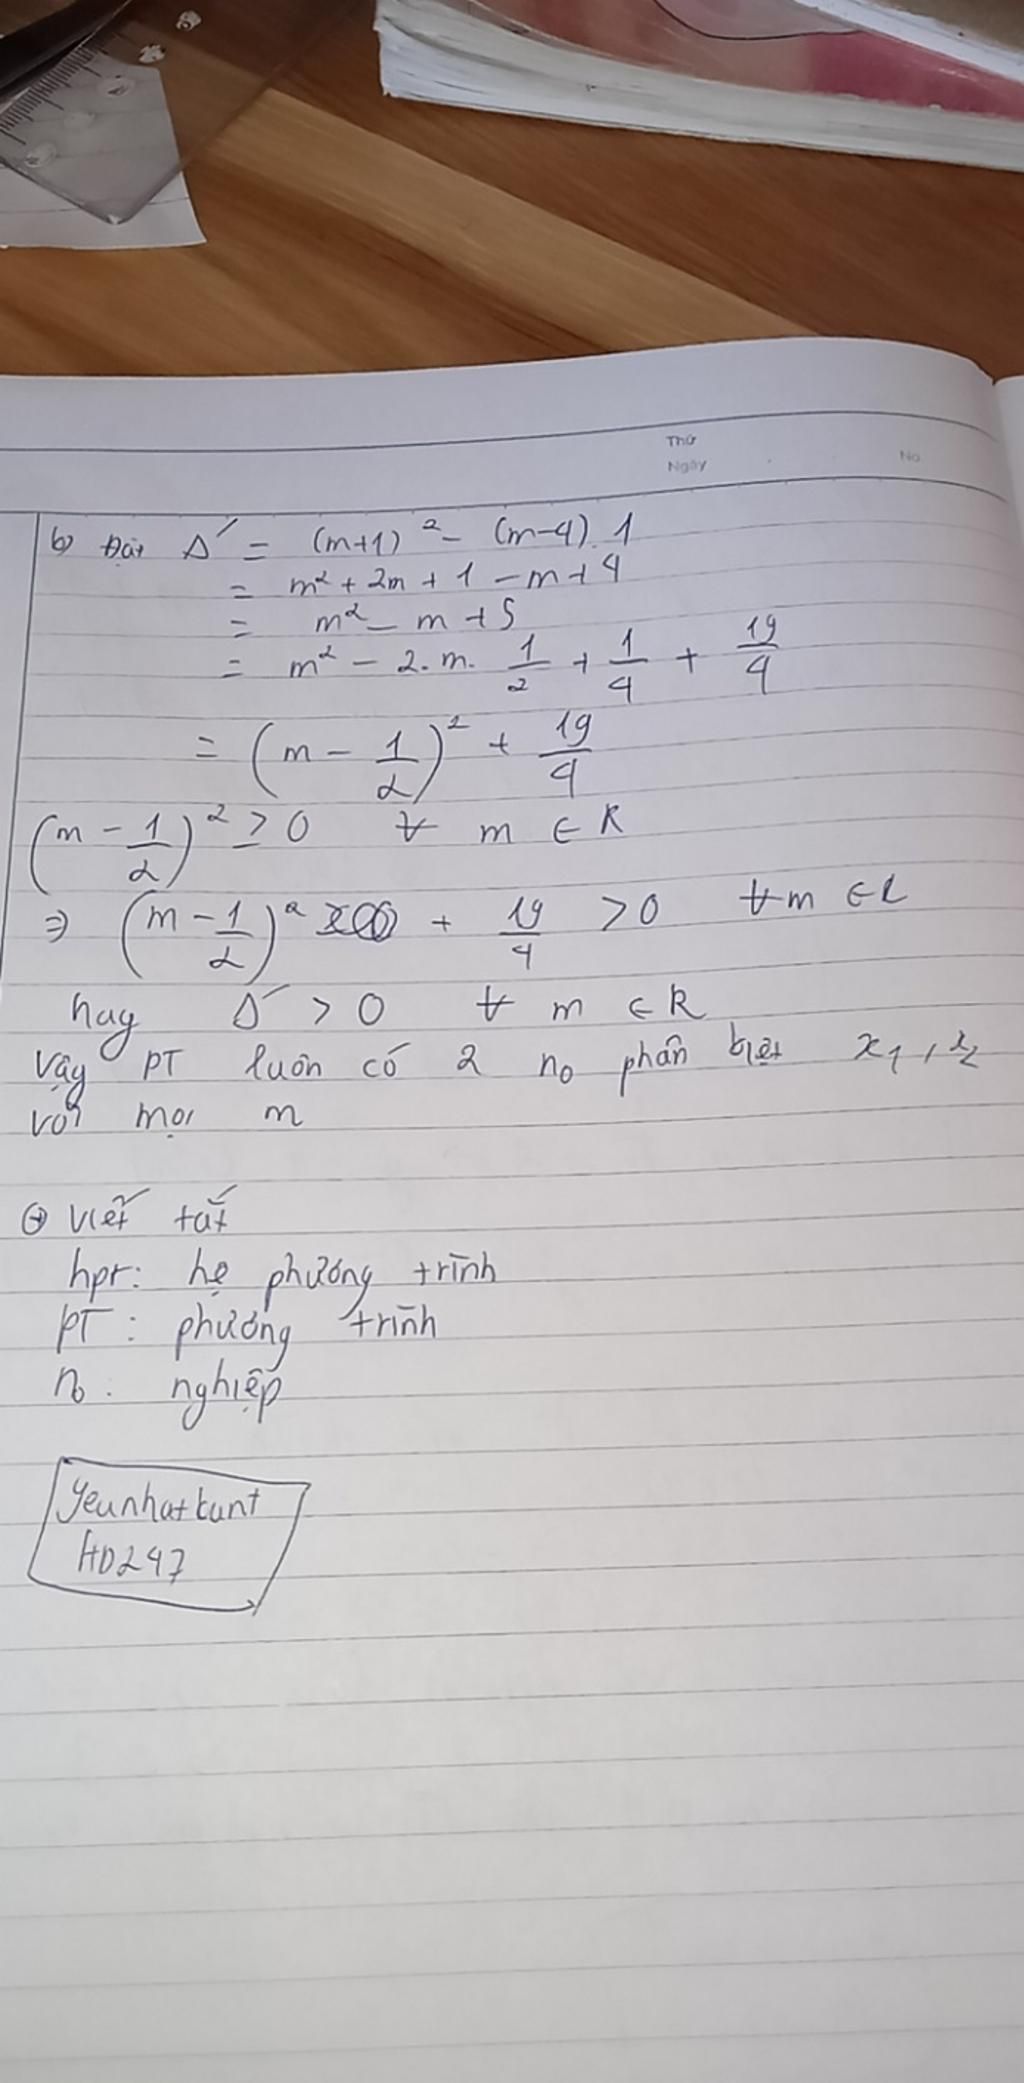 Thứ
Ngày
No.
b) Đặt Δ' = (m+1)² - (m-4).1
= m² + 2m + 1 - m + 4
= m² - m + 5
= m² - 2.m. 1/2 + 1/4 + 19/4
= (m - 1/2)² + 19/4
(m - 1/2)² ≥ 0 ∀ m ∈ R
⇒ (m - 1/2)² + 19/4 > 0 ∀ m ∈ R
hay Δ' > 0 ∀ m ∈ R
Vậy PT luôn có 2 no phân biệt x₁, x₂
với mọi m
viết tắt
hpt: hệ phương trình
PT: phương trình
no: nghiệp
yeunhatkunt
HD247